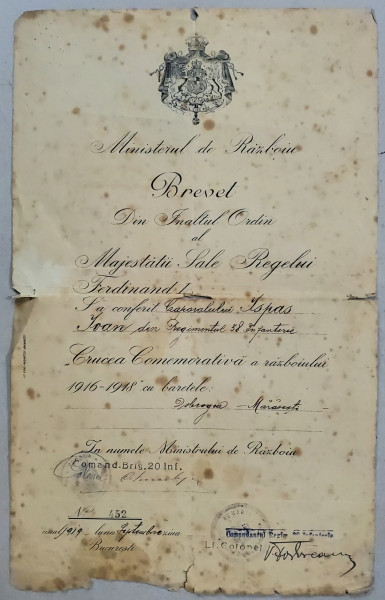 Ministerul de Războiu
Brevet
Din Înaltul Ordin
al
Majestății Sale Regelui
Ferdinand I
S'a conferit Caporalului Ispas
Ioan din Regimentul 28 Infanterie
„Crucea Comemorativă a războiului
1916-1918" cu baretele:
Dobrogea - Mărășești
În numele Ministrului de Războiu
Comand. Brig. 20 Inf.
Colonel
No. 452
anul 1919 luna Septembrie ziua
București
Comandantul Regim.
Lt. Colonel